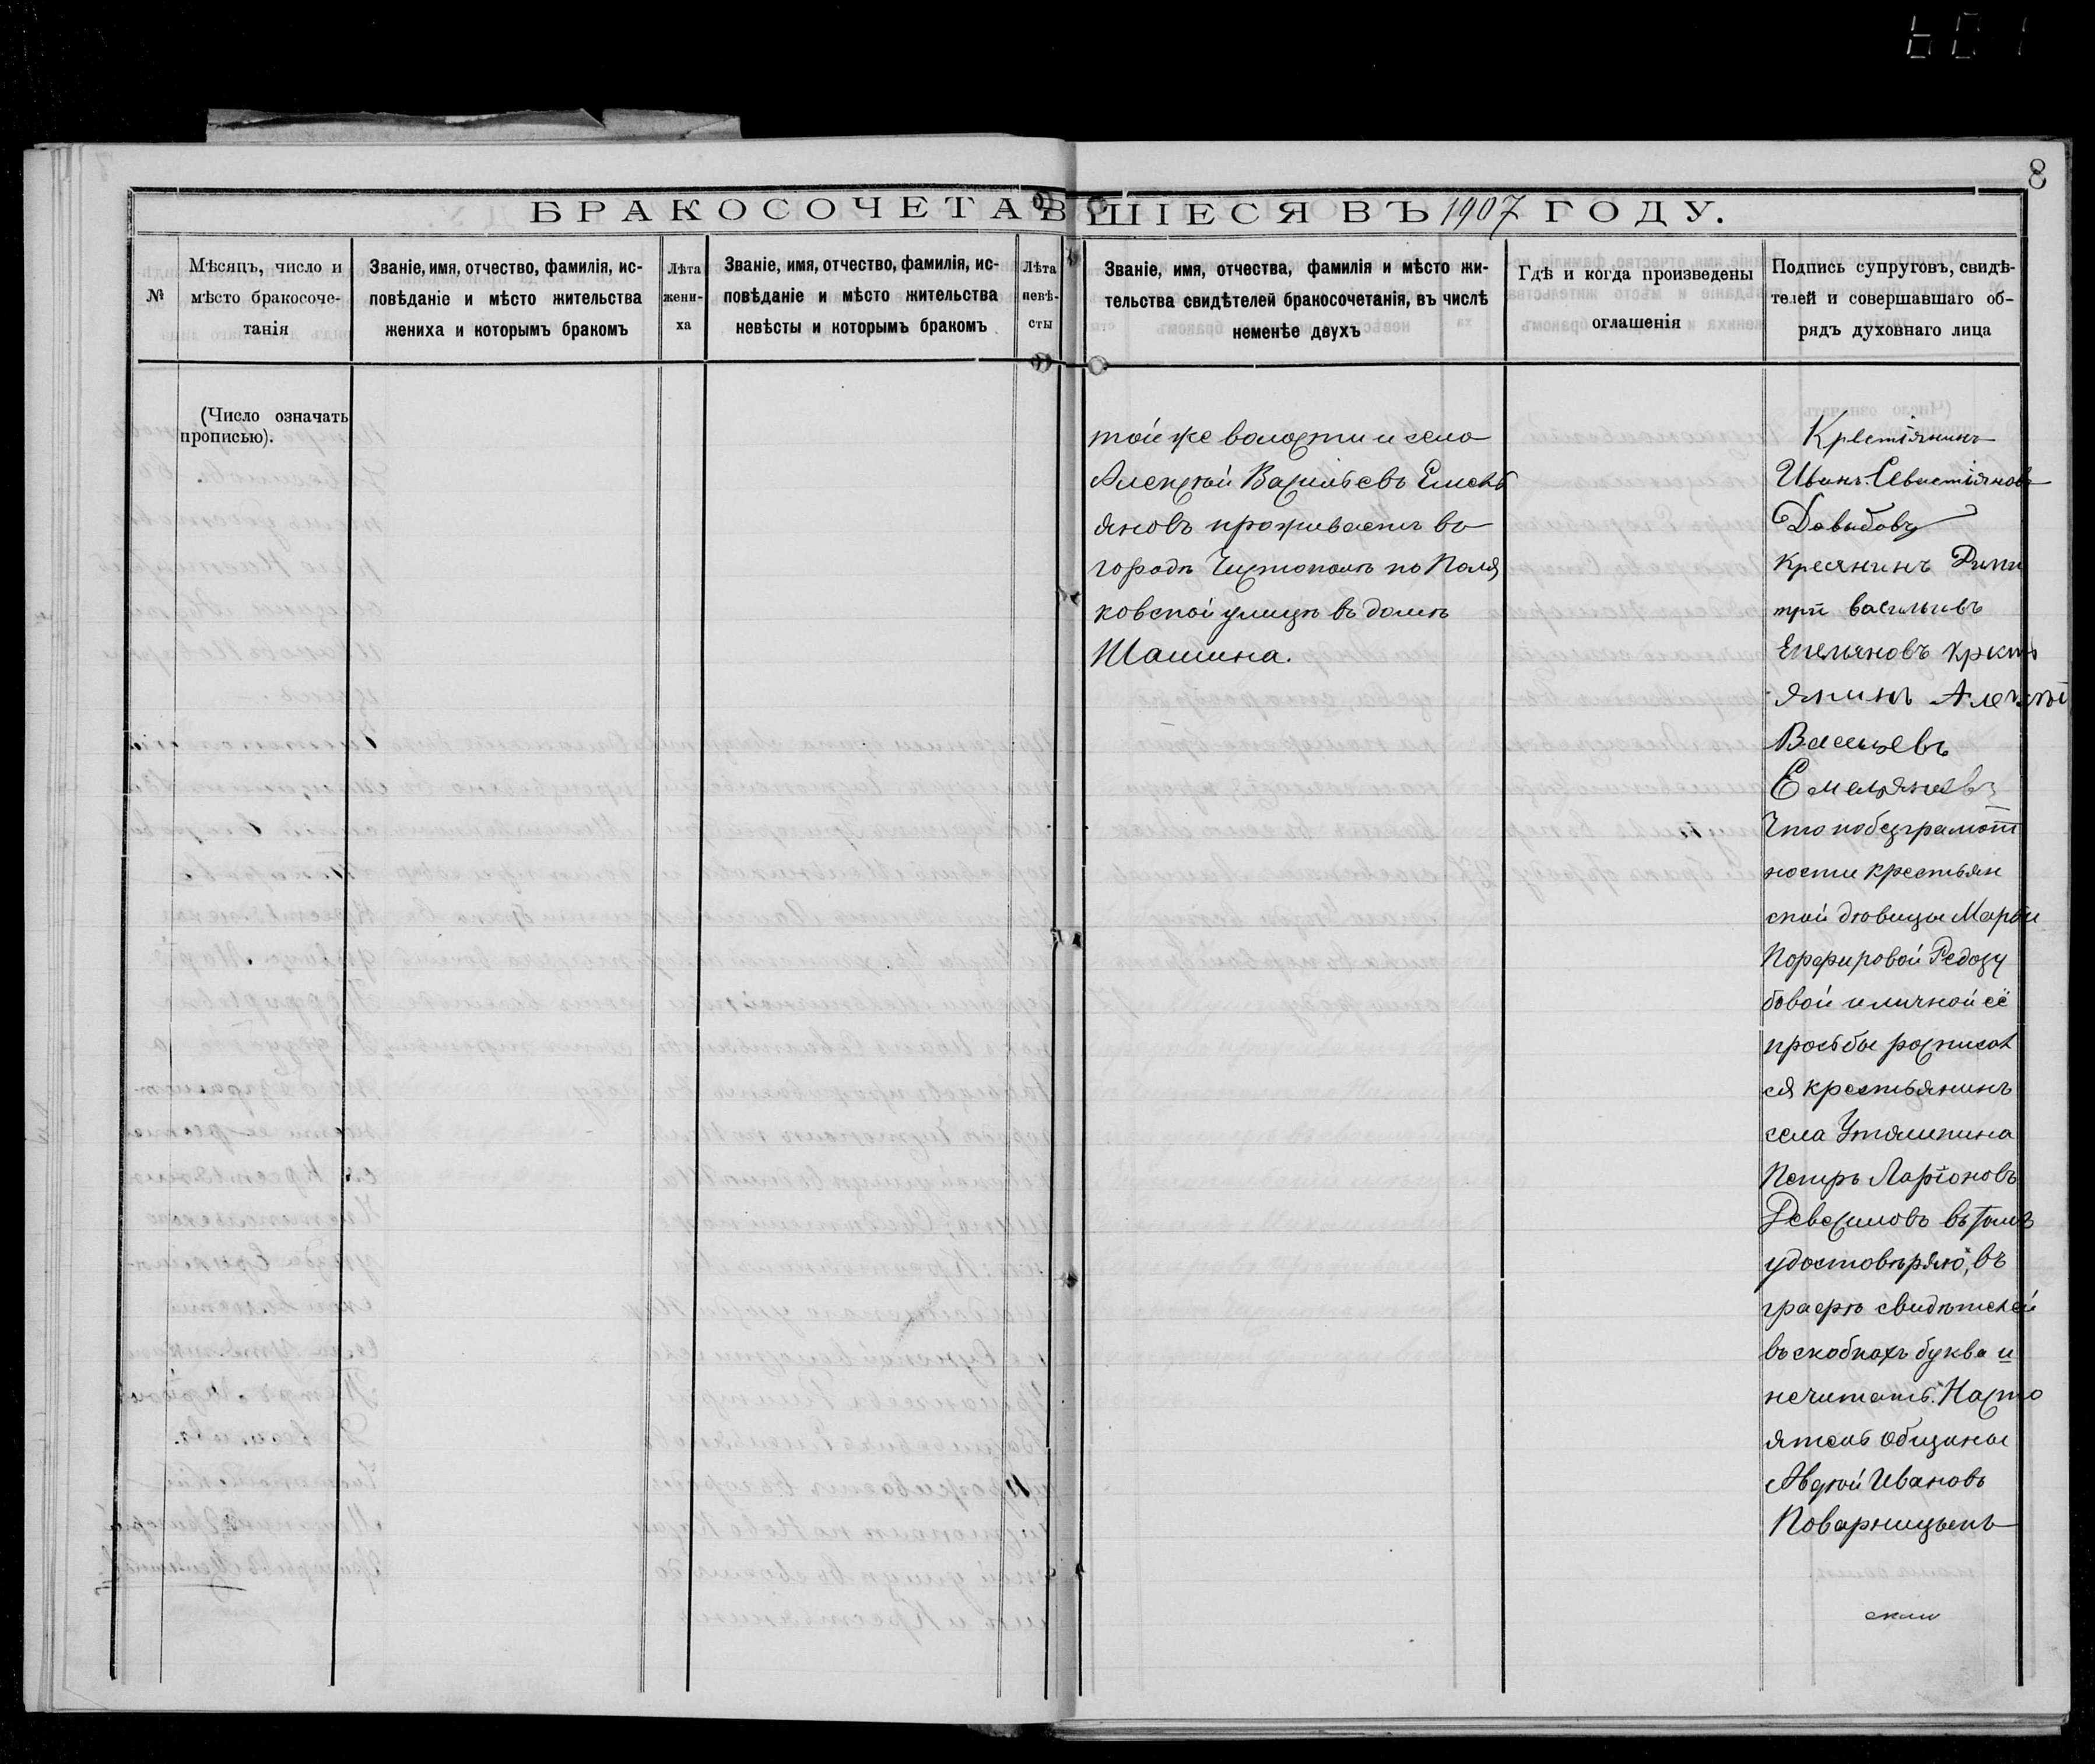 8
БРАКОСОЧЕТАВШІЕСЯ ВЪ 1907 ГОДУ.
№
Мѣсяцъ, число и
мѣсто бракосоче-
танія
Званіе, имя, отчество, фамилія, ис-
повѣданіе и мѣсто жительства
жениха и которымъ бракомъ
Лѣта
жени-
ха
Званіе, имя, отчество, фамилія, ис-
повѣданіе и мѣсто жительства
невѣсты и которымъ бракомъ
Лѣта
невѣ-
сты
Званіе, имя, отчества, фамилія и мѣсто жи-
тельства свидѣтелей бракосочетанія, въ числѣ
неменѣе двухъ
Гдѣ и когда произведены
оглашенія
Подпись супруговъ, свидѣ-
телей и совершавшаго об-
рядъ духовнаго лица
(Число означать
прописью).
той же волости и села
Алексѣй Васильевъ Емель
яновъ проживаетъ въ
городѣ Чистополѣ по Поля
ковской улицѣ въ домѣ
Шашина.
Крестіянинъ
Иванъ Севастіяновъ
Давыдовъ
Кресянинъ Дими
трй васильивъ
Емельяновъ Крксть
янинъ Алексѣй
Васильевъ
Емельяновъ
Что по безграмот
ности крестьян
ской дѣвицы Марѳы
Порфировой Редозу
бовой и личной её
просьбы росписал
ся крестьянинъ
села Утяшкина
Петръ Ларіоновъ
въ томъ
удостовѣряю, въ
графѣ свидѣтелей
въ скобкахъ буква и
нечитать. Насто
ятель Общины
Авдѣй Ивановъ
Поварницынъ